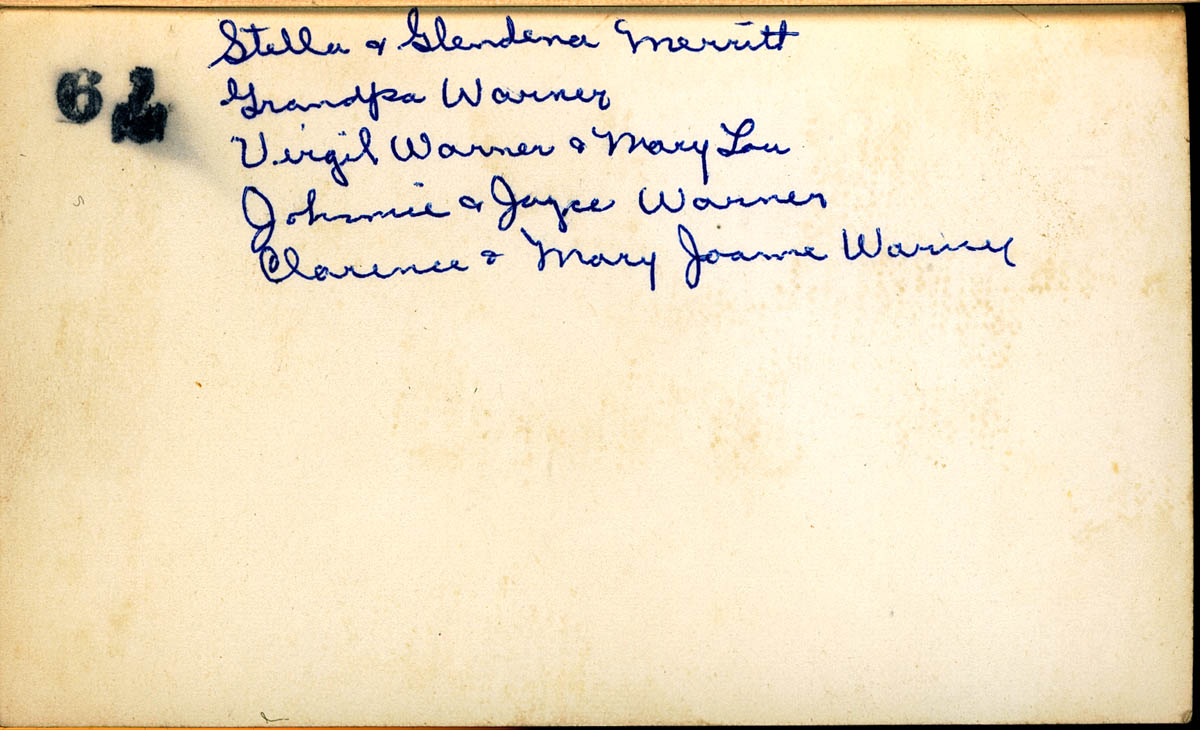 Stella & Glendena Merritt
Grandpa Warner
Virgil Warner & Mary Lou
Johnnie & Joyce Warner
Clarence & Mary Joanne Warner
6